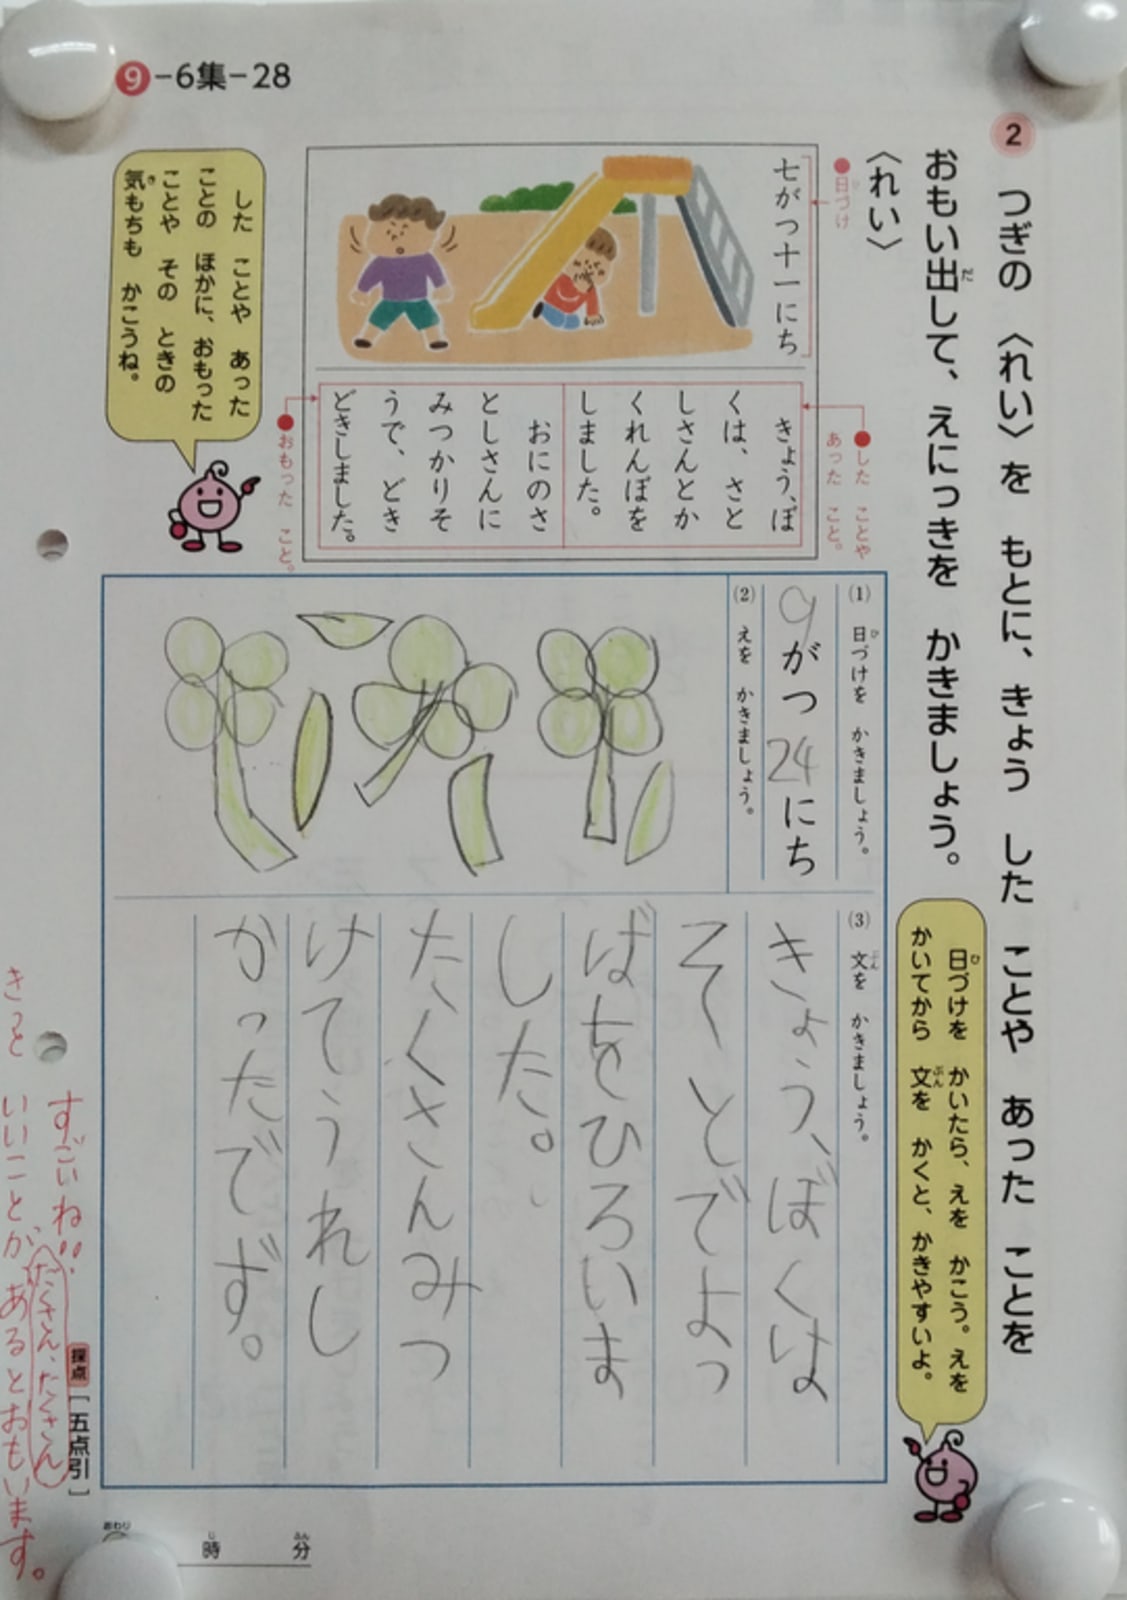 9-6集-28
2 つぎの 〈れい〉を もとに、きょう した ことや あった ことを
おもい出して、えにっきを かきましょう。
だ
〈れい〉
日づけ
ひ
七がつ十一にち
した ことや
あった こと。
きょう、ぼ
くは、さと
しさんとか
くれんぼを
しました。
おにのさ
としさんに
みつかりそ
うで、どき
どきしました。
おもった こと。
した ことや あった
ことの ほかに、おもった
ことや その ときの
気もちも かこうね。
き
日づけを かいたら、えを かこう。えを
ひ
かいてから 文を かくと、かきやすいよ。
ぶん
(1) 日づけを かきましょう。
ひ
9がつ24にち
(2) えを かきましょう。
(3) 文を かきましょう。
ぶん
きょう、ぼくは
そとでよっ
ばをひろいま
した。
たくさんみつ
けてうれし
かったでず。
すごいね!!
たくさん、たくさん
きっと いいことが、あるとおもいます。
採点[五点引]
おわり
時
じ
分
ふん